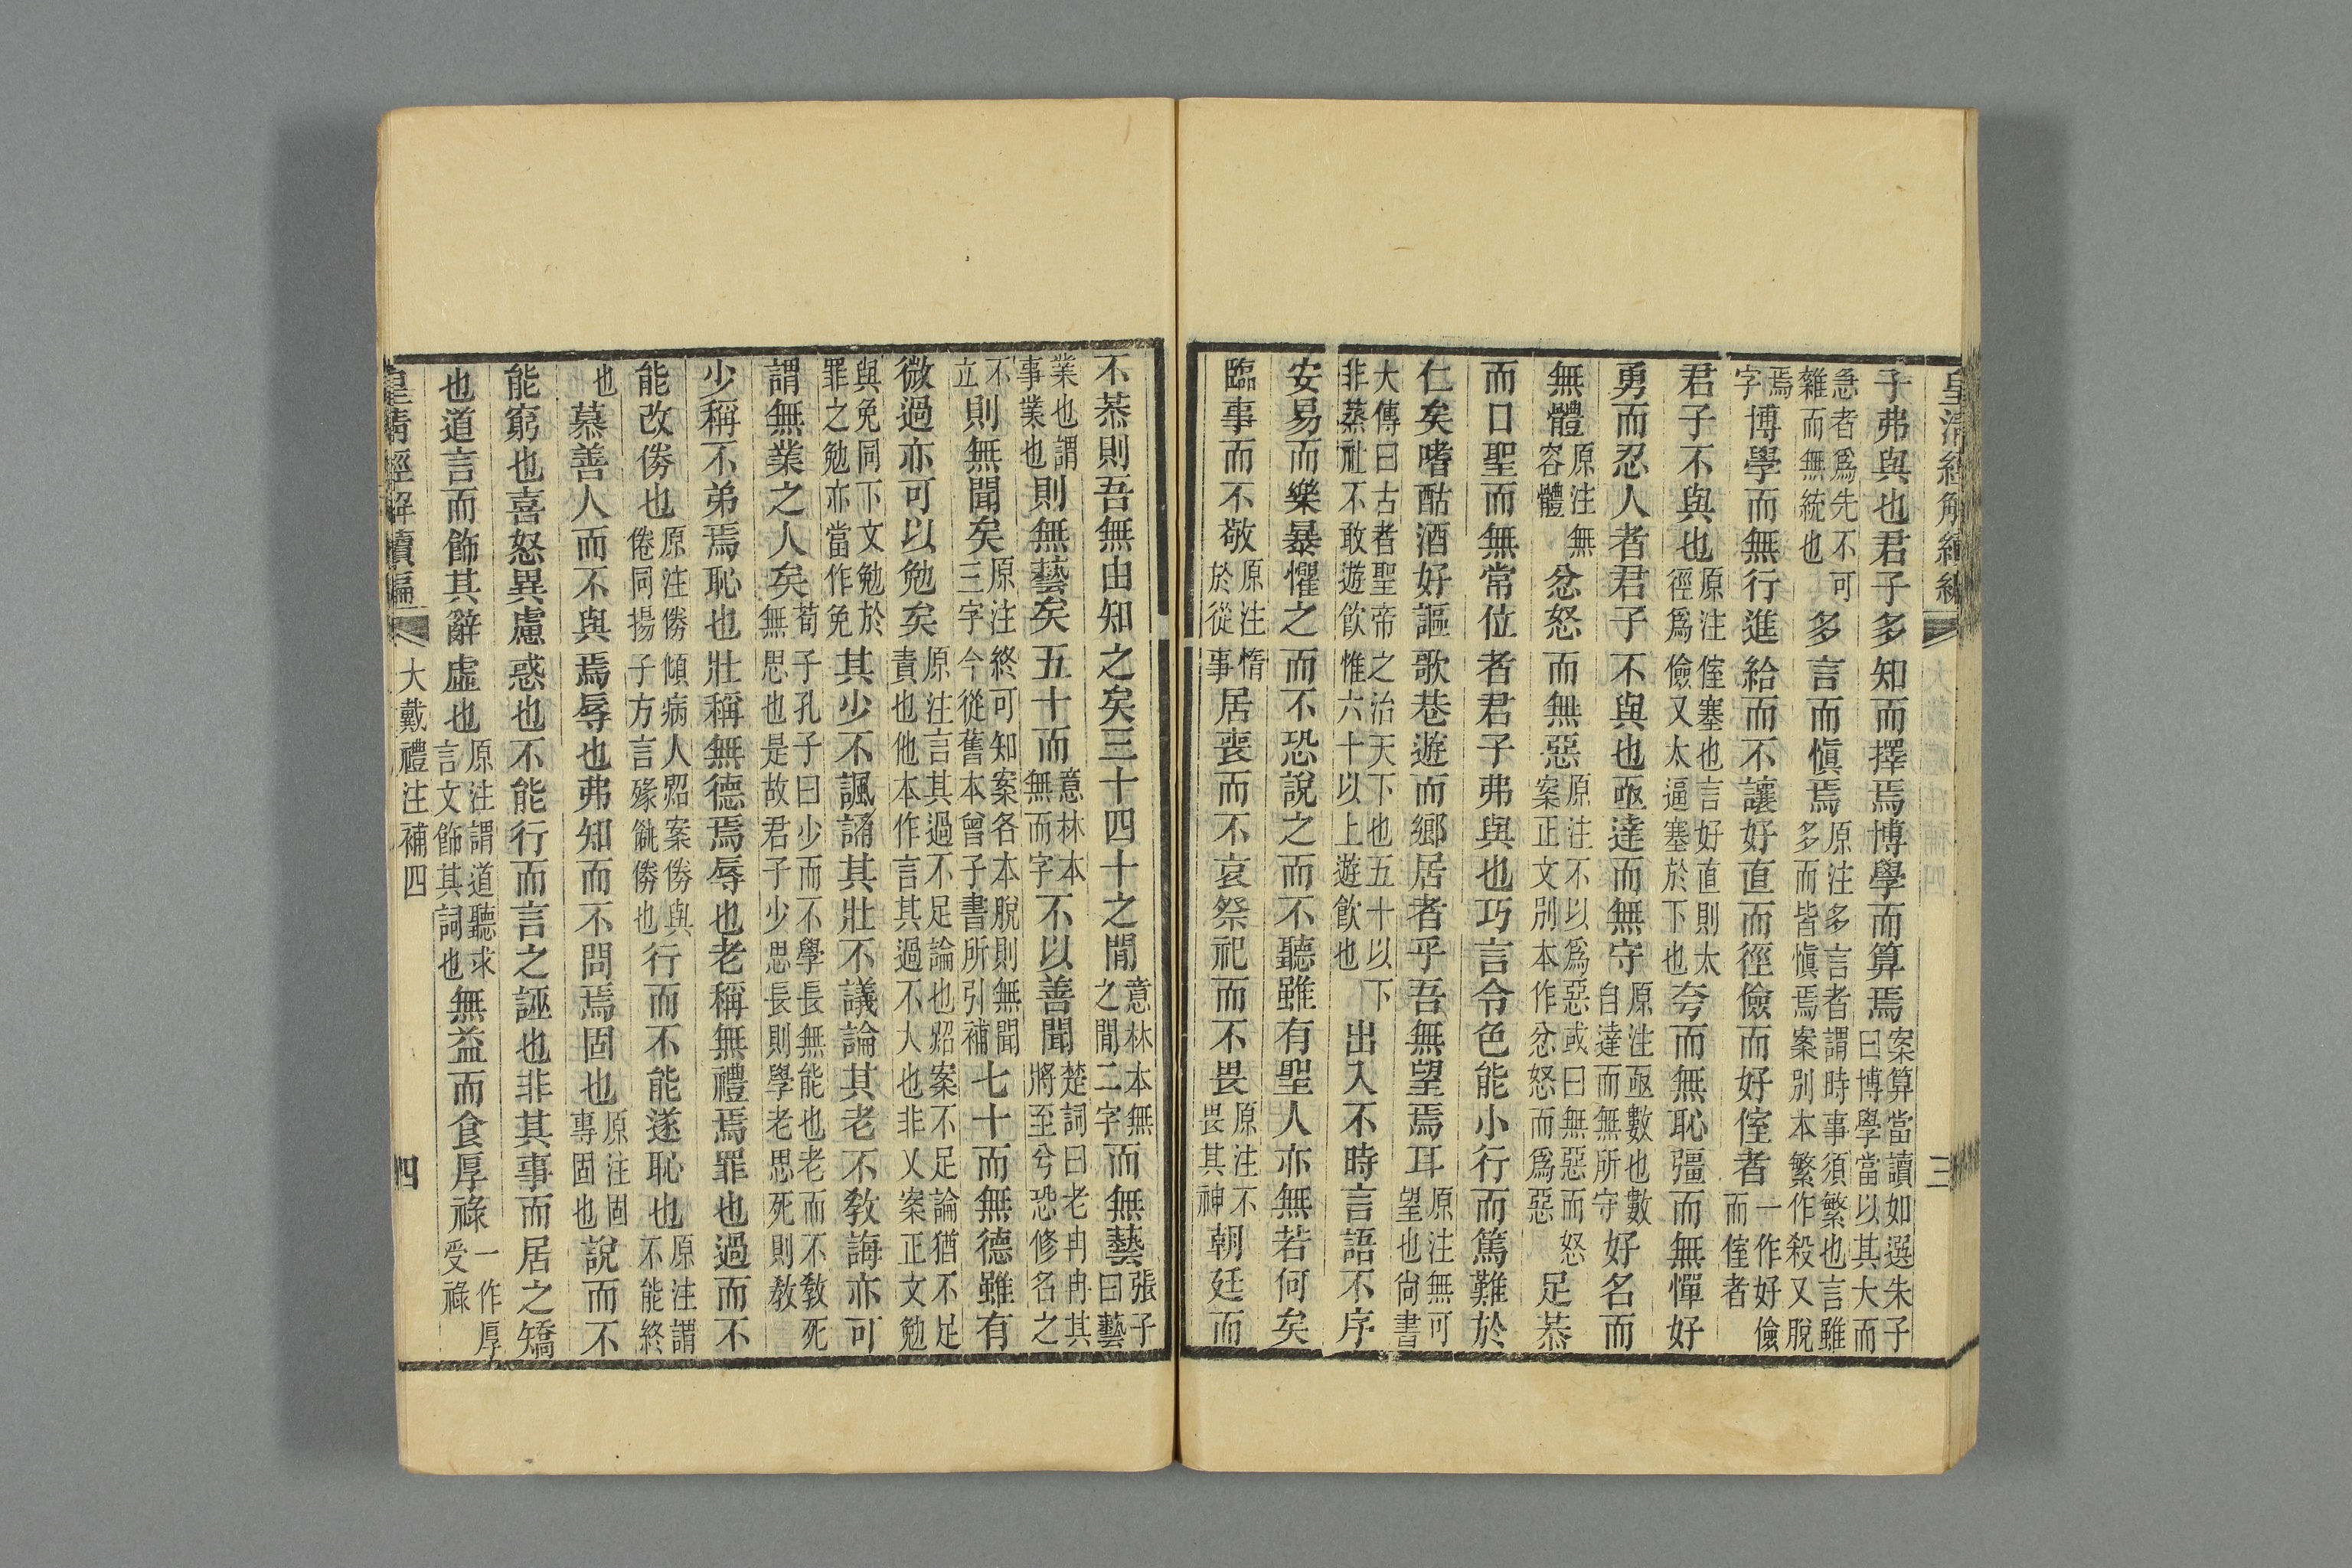 皇清經解續編
三
子弗與也君子多知而擇焉博學而算焉案算當讀如選朱子曰博學當以其大而
急者爲先不可雜而無統也多言而愼焉原注多言者謂時事須繁也言雖多而皆愼焉案別本繁作殺又脫
焉字博學而無行進給而不讓好直而徑儉而好𠊷者一作好儉而𠊷者
君子不與也原注𠊷塞也言好直則太徑爲儉又太逼塞於下也夸而無恥彊而無憚好
勇而忍人者君子不與也亟達而無守原注亟數也數自達而無所守好名而
無體原注無容體忿怒而無惡原注不以爲惡或曰無惡而怒案正文別本作忿怒而爲惡足恭
而口聖而無常位者君子弗與也巧言令色能小行而篤難於
仁矣嗜酤酒好謳歌巷遊而鄉居者乎吾無望焉耳原注無可望也尙書
大傳曰古者聖帝之治天下也五十以下非蒸社不敢遊飮惟六十以上遊飮也出入不時言語不序
安易而樂暴懼之而不恐說之而不聽雖有聖人亦無若何矣
臨事而不敬原注惰於從事居喪而不哀祭祀而不畏原注不畏其神朝廷而
不恭則吾無由知之矣三十四十之閒意林本無之閒二字而無藝張子曰藝
業也謂事業也則無藝矣五十而意林本無而字不以善聞楚詞曰老冉冉其將至兮恐修名之
不立則無聞矣原注終可知案各本脫則無聞三字今從舊本曾子書所引補七十而無德雖有
微過亦可以勉矣原注言其過不足論也炤案不足論猶不足責也他本作言其過不大也非乂案正文勉
與免同下文勉於罪之勉亦當作免其少不諷誦其壯不議論其老不敎誨亦可
謂無業之人矣荀子孔子曰少而不學長無能也老而不敎死無思也是故君子少思長則學老思死則敎
少稱不弟焉恥也壯稱無德焉辱也老稱無禮焉罪也過而不
能改倦也原注倦傾病人炤案倦與倦同揚子方言㱴㑜倦也行而不能遂恥也原注謂不能終
也慕善人而不與焉辱也弗知而不問焉固也原注固專固也說而不
能窮也喜怒異慮惑也不能行而言之誣也非其事而居之矯
也道言而飾其辭虛也原注謂道聽求言文飾其詞也無益而食厚祿一作厚受祿
皇清經解續編
大戴禮注補四
四